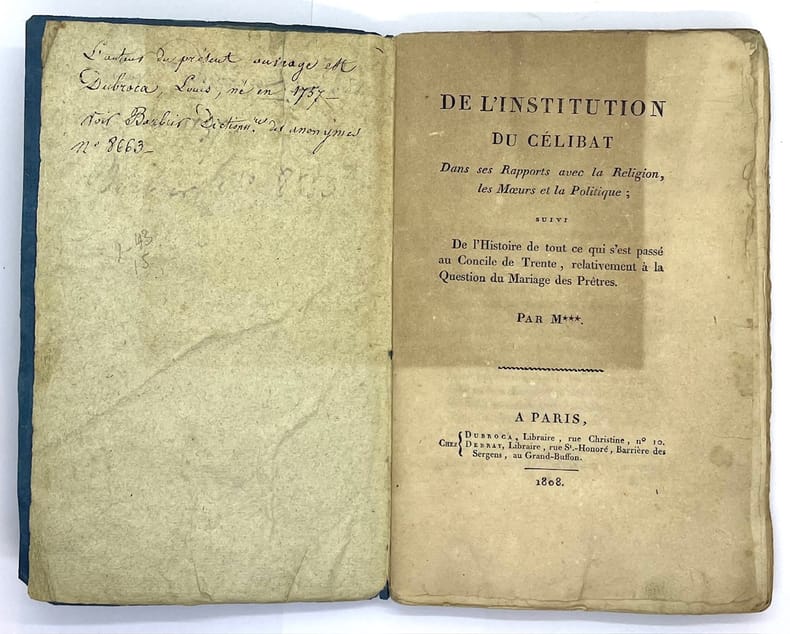 L'auteur du présent ouvrage est
Dubroca, Louis, né en 1757_
voir Barbier Dictionn.res des anonymes
n° 8663_
DE L'INSTITUTION
DU CÉLIBAT
Dans ses Rapports avec la Religion,
les Mœurs et la Politique ;
SUIVI
De l'Histoire de tout ce qui s'est passé
au Concile de Trente, relativement à la
Question du Mariage des Prêtres.
PAR M***.
A PARIS,
CHEZ { DUBROCA, Libraire, rue Christine, n° 10.
DEBRAY, Libraire, rue St.-Honoré, Barrière des
Sergens, au Grand-Buffon.
1808.